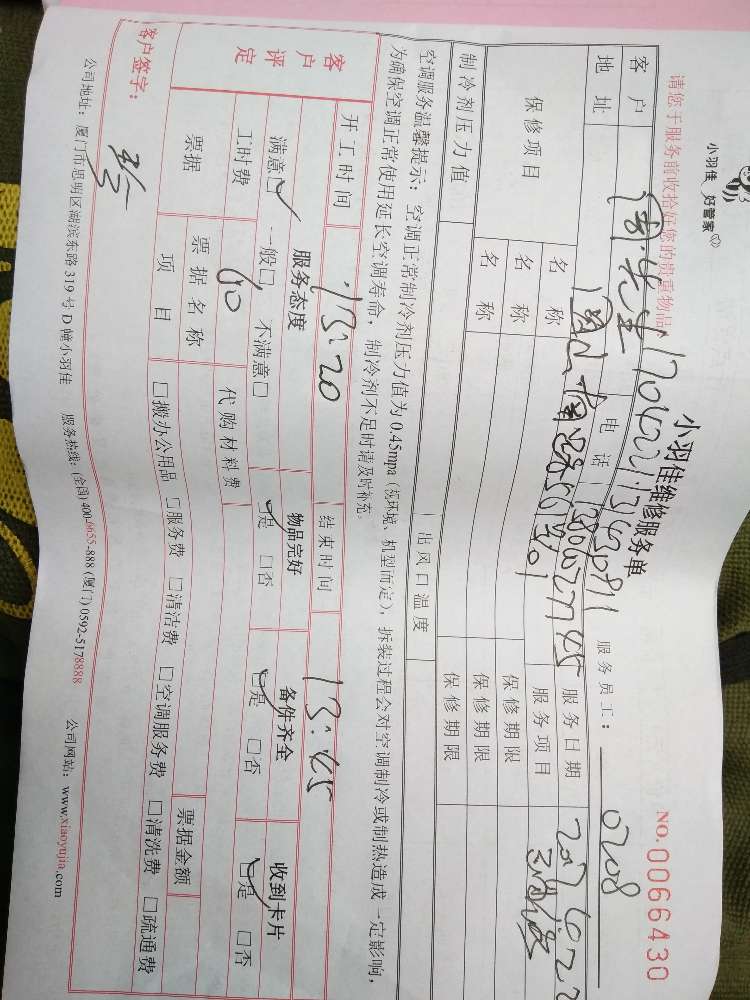 小羽佳 好管家
小羽佳维修服务单
NO.0066430
请您于服务前收拾好您的贵重物品
服务员工： 0208
客户 电话 服务日期
地址 服务项目
保修项目 名称 保修期限
名称 保修期限
名称 保修期限
制冷剂压力值 出风口温度
空调服务温馨提示：空调正常制冷剂压力值为0.45mpa（视环境、机型而定），拆装过程会对空调制冷或制热造成一定影响，
为确保空调正常使用延长空调寿命，制冷剂不足时请及时补充。
客户评定
开工时间 13:20 结束时间 13:45
服务态度 物品完好 备件齐全 收到卡片
满意□ 一般□ 不满意□ □是 □否 □是 □否 □是 □否
工时费 40 代购材料费
票据 票据名称 票据金额
项目 □搬办公用品 □服务费 □清洁费 □空调服务费 □清洗费 □疏通费
客户签字：
公司地址：厦门市思明区湖滨东路319号D幢小羽佳 服务热线：(全国) 400-6655-888 (厦门) 0592-5178888 公司网站：www.xiaoyujia.com